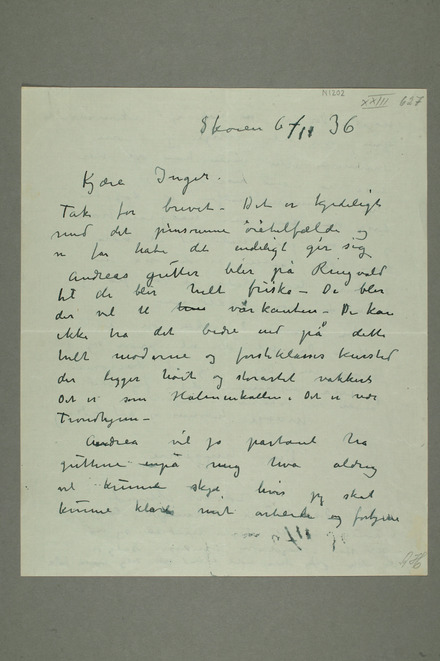 N1202
XXIII 627
Skøien 6/11 36
Kjære Inger.
Tak for brevet – Det er kjedeligt
med det pinsomme øietilfælde og
vi får håbe det endeligt gir sig
Andreas gutter blir på Ringvold
til de blir helt friske – De blir
der vel til vårkanten – De kan
ikke ha det bedre end på dette
helt moderne og førsteklasses kursted
der ligger høit og storartet vakkert
Det er som Holmenkollen. Det er ved
Trondhjem –
Andrea vil jo partout ha
guttene på mig hva aldrig
vil kunne skje hvis jeg skal
kunne klare mit arbeide og forsyne